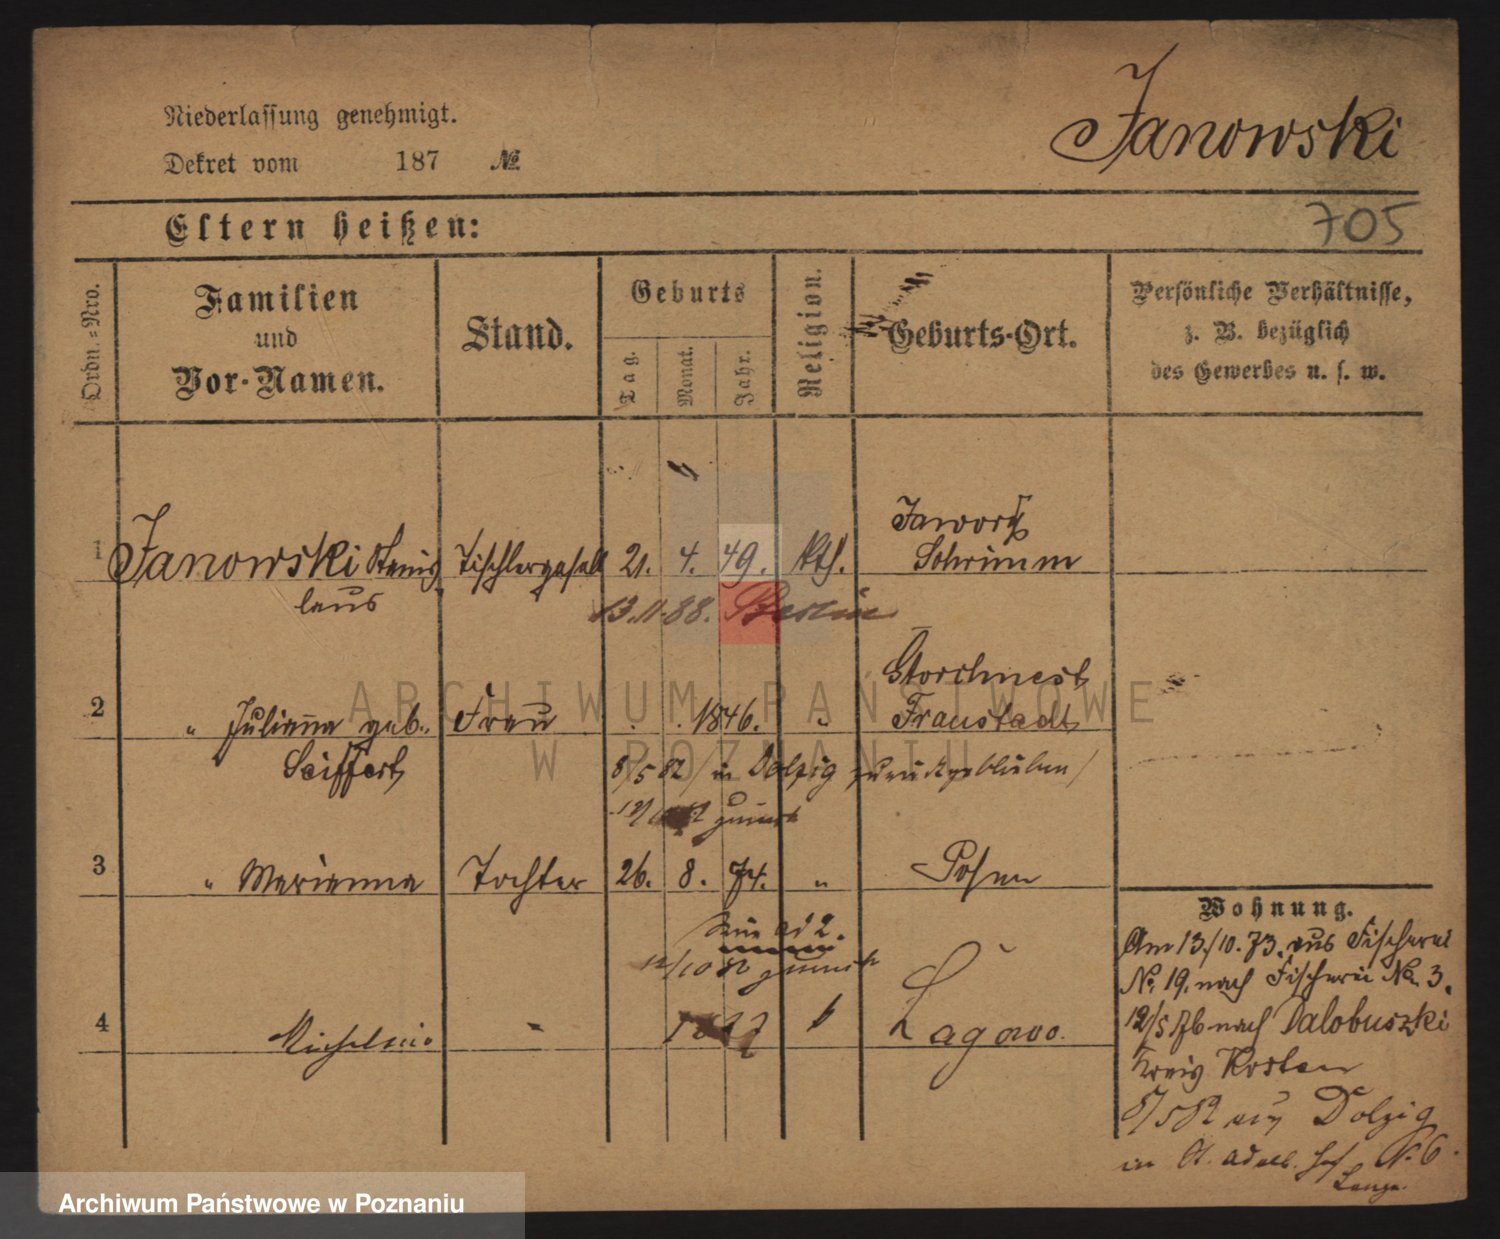 Janowski
Niederlassung genehmigt.
Dekret vom 187 №
Eltern heißen:
705
Ordn.=Nro.
Familien
und
Vor-Namen.
Stand.
Geburts
Tag.
Monat.
Jahr.
Religion.
Geburts-Ort.
Persönliche Verhältnisse,
z. B. bezüglich
des Gewerbes u. s. w.
Jawory
1 Janowski Stanis Tischlergesell 21. 4. 49. kth. Schrimm
laus
13.11.88. Berlin
Storchnest
2 " Julianna geb. Frau 1846. " Fraustadt
Seiffert
8/5 82 / in Dolzig zurückgeblieben /
12/10 82 zurück
3 " Marianna Tochter 26. 8. 74. " Posen
ad 2.
12/10 82 zurück
4 Lagowo.
Wohnung.
Am 13./10. 73. aus Fischerei
No. 19. nach Fischerei No. 3.
12/5 76 nach Dalobuszki
Kreis Kosten
8/5 82 aus Dolzig
in St. Adalb. N. 6.
Archiwum Państwowe
w Poznaniu
Archiwum Państwowe w Poznaniu